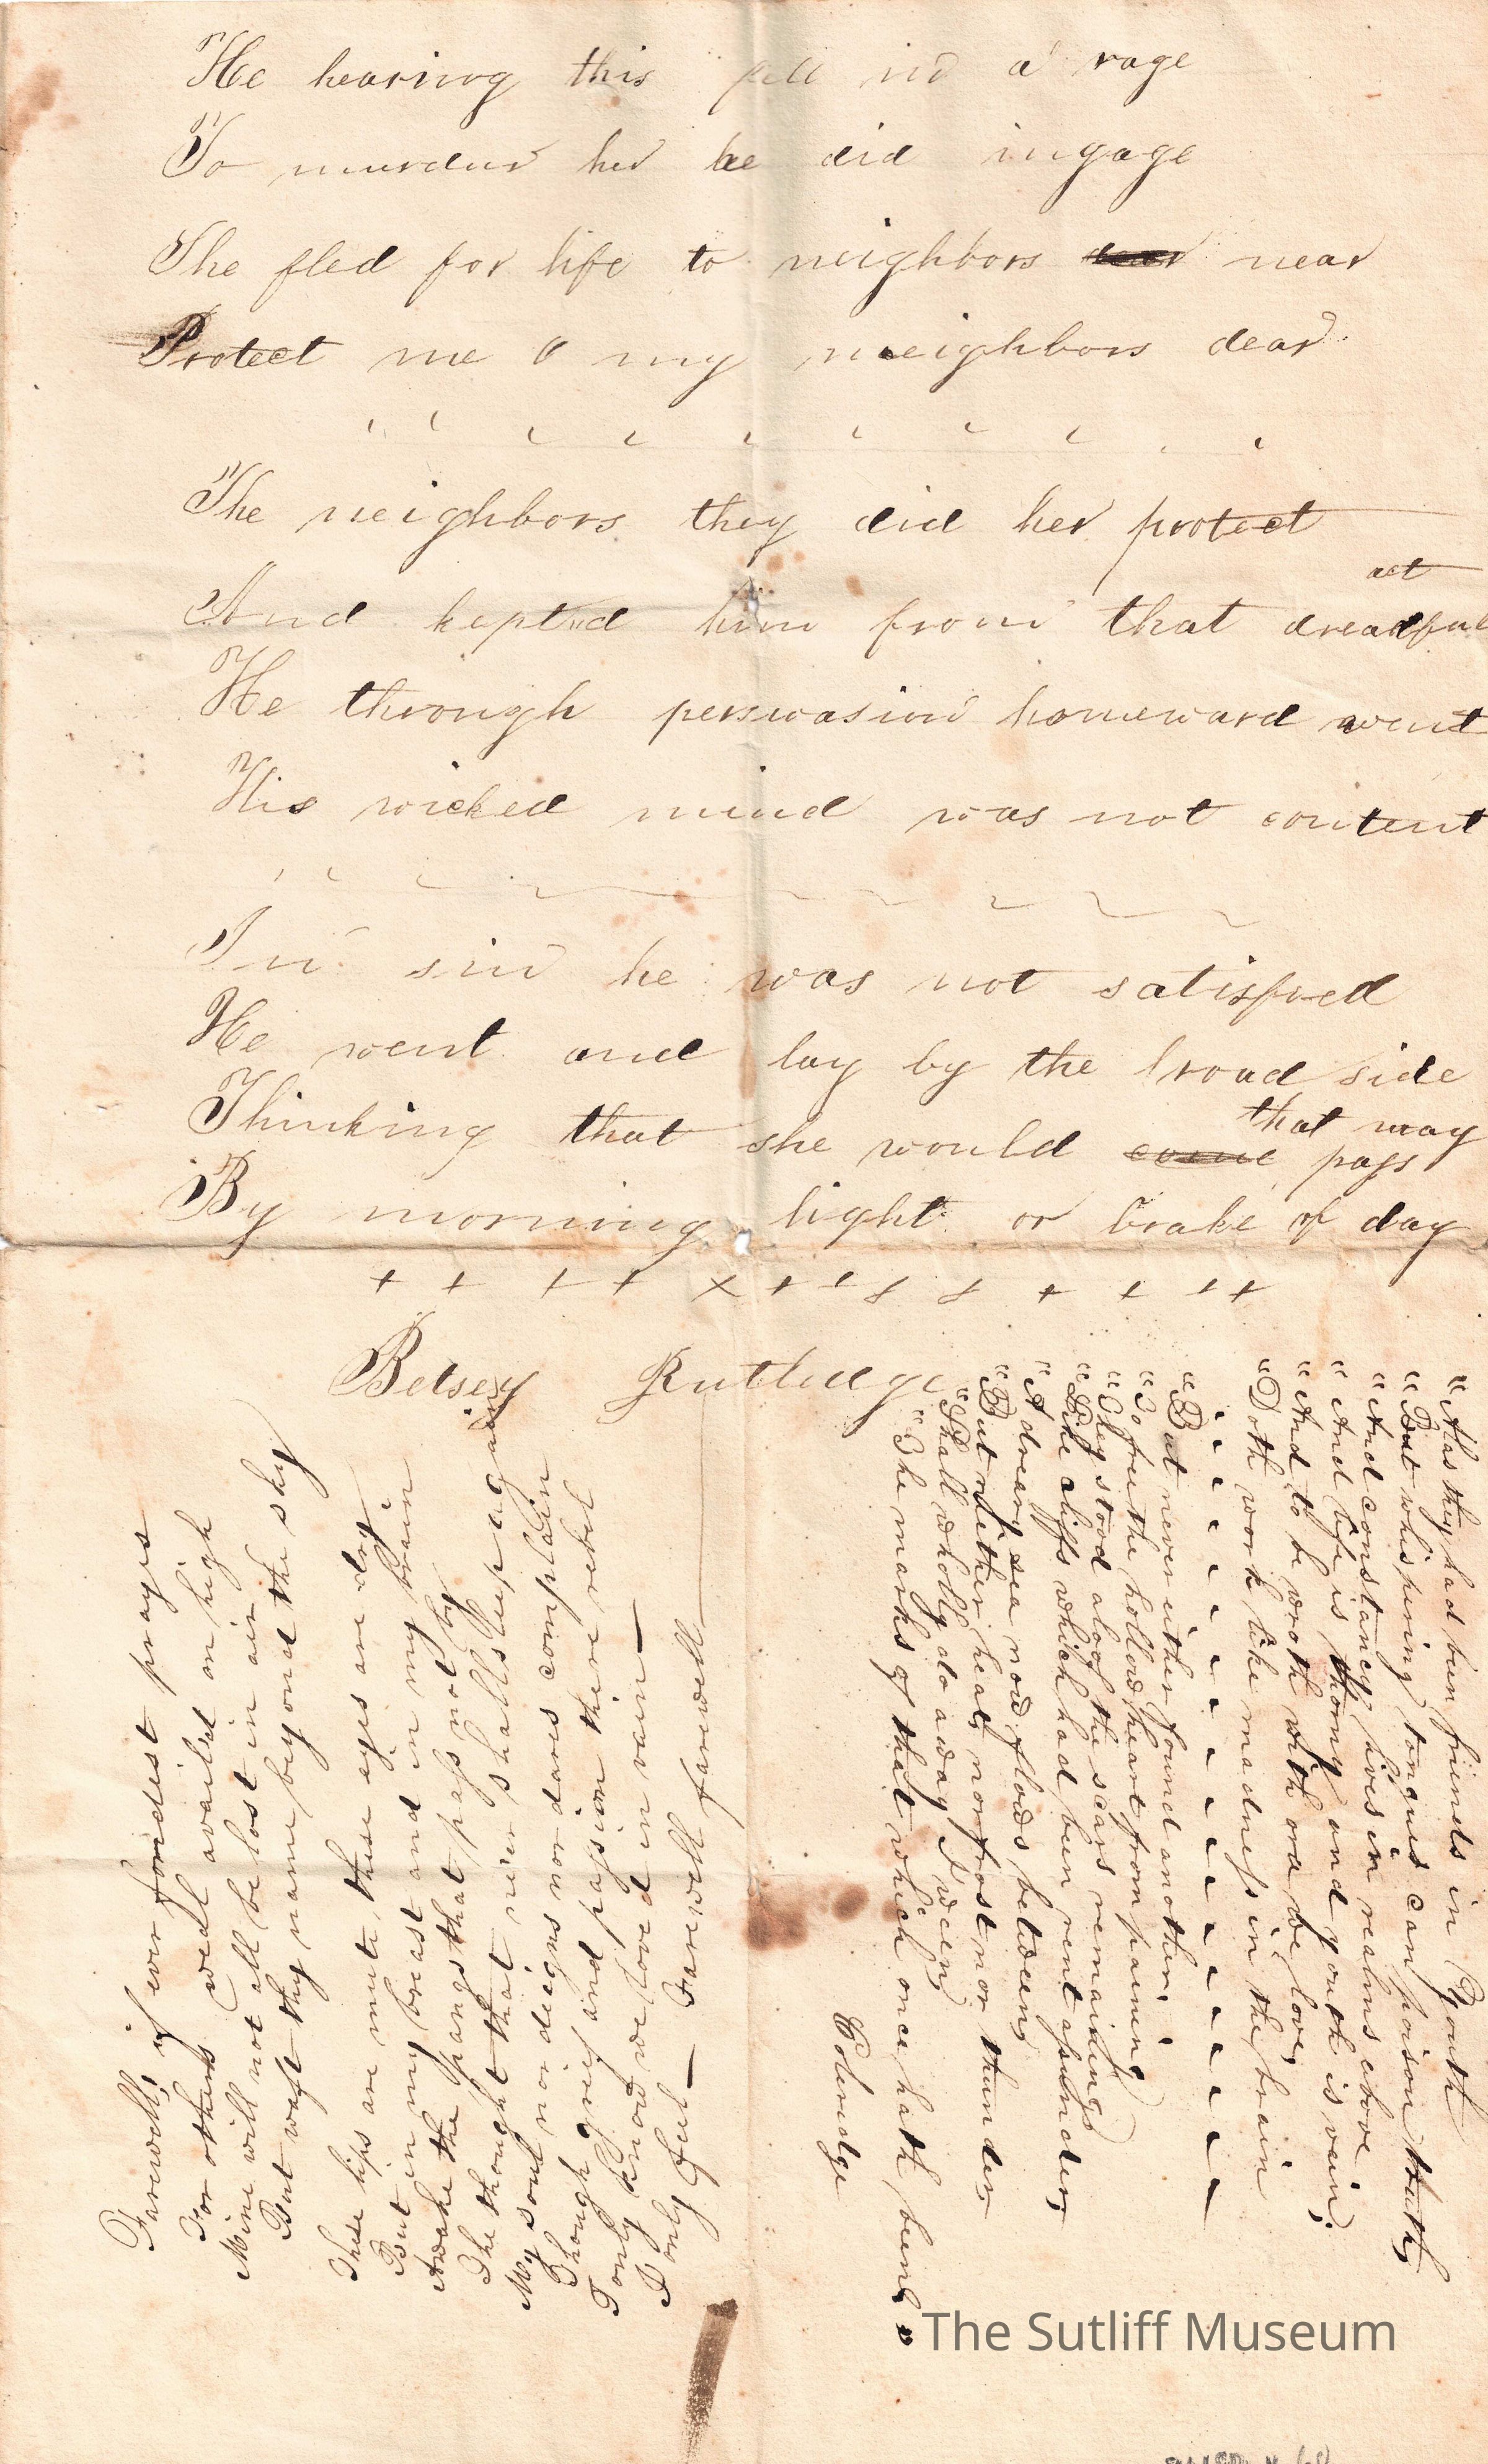 He hearing this fell in a rage
To murder her he did ingage
She fled for life to neighbors dear near
Protect me O my neighbors dear
The neighbors they did her protect
act
And kepted him from that dreadful
He through perswasion homeward went
His wicked mind was not content
In sin he was not satisfied
He went and lay by the broad side
that way
Thinking that she would come pass
By morning light or brake of day
+ + + + x + + + + + + + +
Betsey Rutledge
Farewell, if ever fondest prayer
For others weal availed on high
Mine will not all be lost in air
But waft thy name beyond the sky
These lips are mute these eyes are dry
But in my breast and in my brain
Awake the pangs that pass not by
The thought that neer shall sleep again
My soul nor deigns nor dares complain
Though grief and passion there rebel
I only know we loved in vain —
I only feel — Farewell farewell
"Alas they had been friends in Youth
"But whispering tongues can poison truth,
"And constancy lives in realms above
"And life is thorny and youth is vain;
"And to be wroth with one we love,
"Doth work like madness in the brain
"But never either found another
"To free the hollow heart from paining
"They stood aloof the scars remaining
"Like cliffs which had been rent asunder,
"A dreary sea now flows between,
"But neither heat, nor frost nor thunder,
"Shall wholly do away I ween,
"The marks of that which once hath been."
Coleridge
The Sutliff Museum